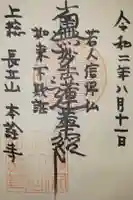 令和二年八月十一日
若人信得仏
南無妙法蓮華経
如来下部誌
上総 長立山 本詮寺